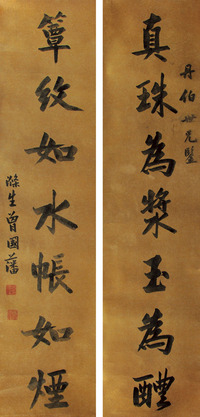 真珠為漿玉為醴
丹伯世兄鑒
簟紋如水帳如煙
滌生曾國藩